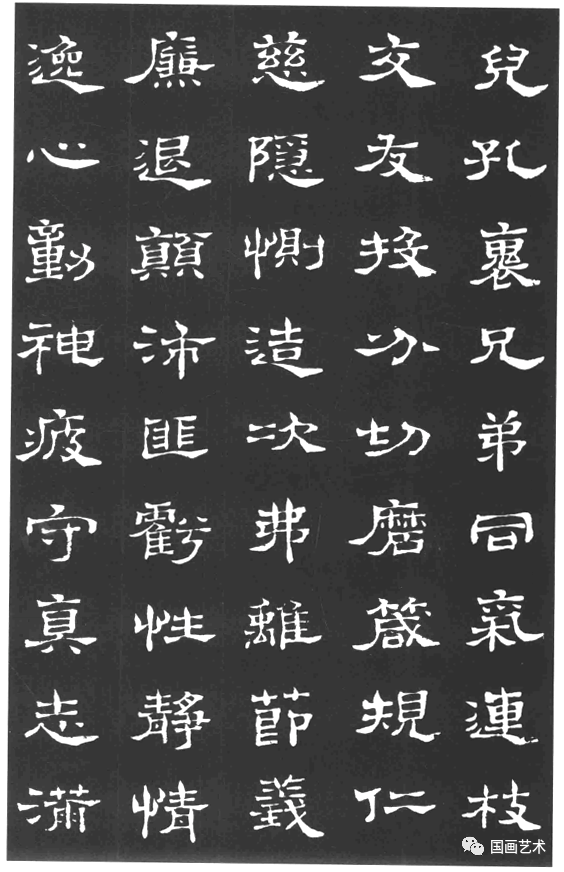 兒孔裏兄弟同氣連枝
交友投分切磨箴規仁
慈隱惻造次弗離節義
廉退顛沛匪虧性靜情
逸心動神疲守真志滿
国画艺术